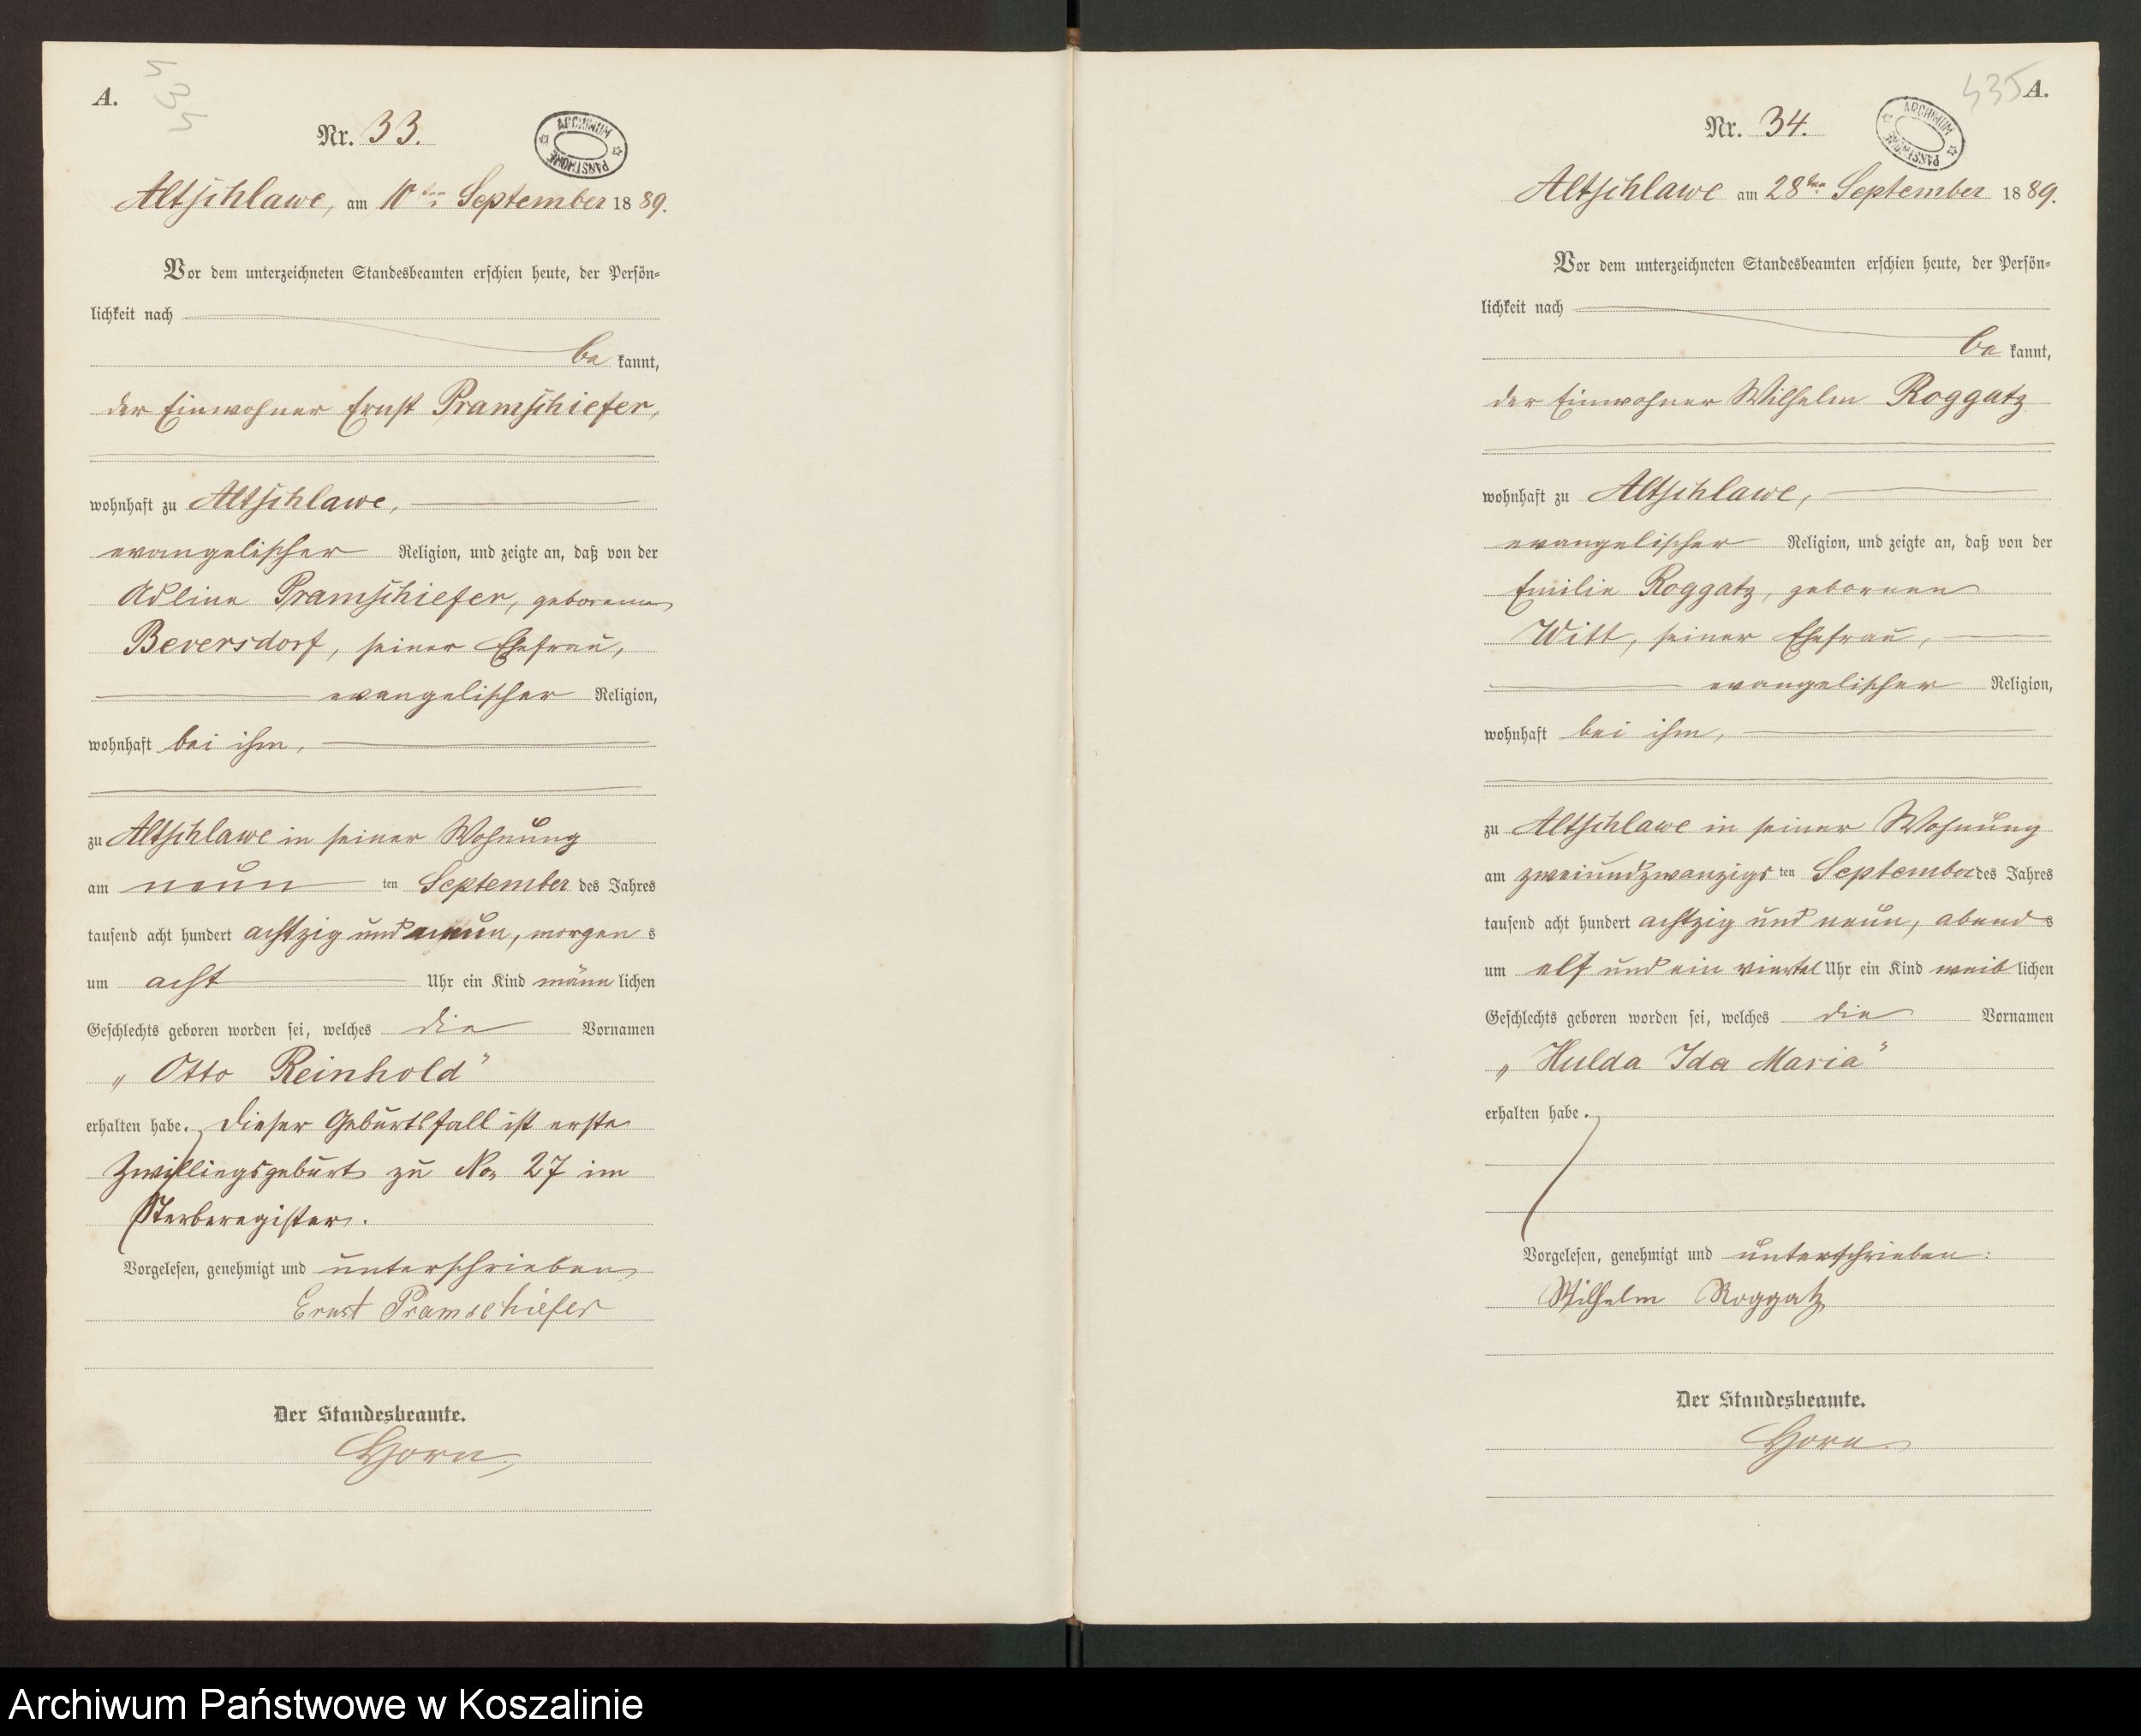 A.
434
Nr. 33.
ARCHIWUM PAŃSTWOWE
Altschlawe, am 10ten September 1889.
Vor dem unterzeichneten Standesbeamten erschien heute, der Persön-
lichkeit nach
be kannt,
der Einwohner Ernst Pramschiefer,
wohnhaft zu Altschlawe,
evangelischer Religion, und zeigte an, daß von der
Adline Pramschiefer, geborenen
Beversdorf, seiner Ehefrau,
evangelischer Religion,
wohnhaft bei ihm,
zu Altschlawe in seiner Wohnung
am neun ten September des Jahres
tausend acht hundert achtzig und neun, morgen s
um acht Uhr ein Kind männ lichen
Geschlechts geboren worden sei, welches die Vornamen
„Otto Reinhold“
erhalten habe. Dieser Geburtsfall ist erste
Zwillingsgeburt zu No. 27 im
Sterberegister.
Vorgelesen, genehmigt und unterschrieben
Ernst Pramschiefer
Der Standesbeamte.
Horn.
435 A.
Nr. 34.
ARCHIWUM PAŃSTWOWE
Altschlawe am 28ten September 1889.
Vor dem unterzeichneten Standesbeamten erschien heute, der Persön-
lichkeit nach
be kannt,
der Einwohner Wilhelm Roggatz
wohnhaft zu Altschlawe,
evangelischer Religion, und zeigte an, daß von der
Emilie Roggatz, gebornen
Witt, seiner Ehefrau,
evangelischer Religion,
wohnhaft bei ihm,
zu Altschlawe in seiner Wohnung
am zweiundzwanzigs ten September des Jahres
tausend acht hundert achtzig und neun, abend s
um elf und ein viertel Uhr ein Kind weib lichen
Geschlechts geboren worden sei, welches die Vornamen
„Hulda Ida Maria“
erhalten habe.
Vorgelesen, genehmigt und unterschrieben:
Wilhelm Roggatz
Der Standesbeamte.
Horn.
Archiwum Państwowe w Koszalinie